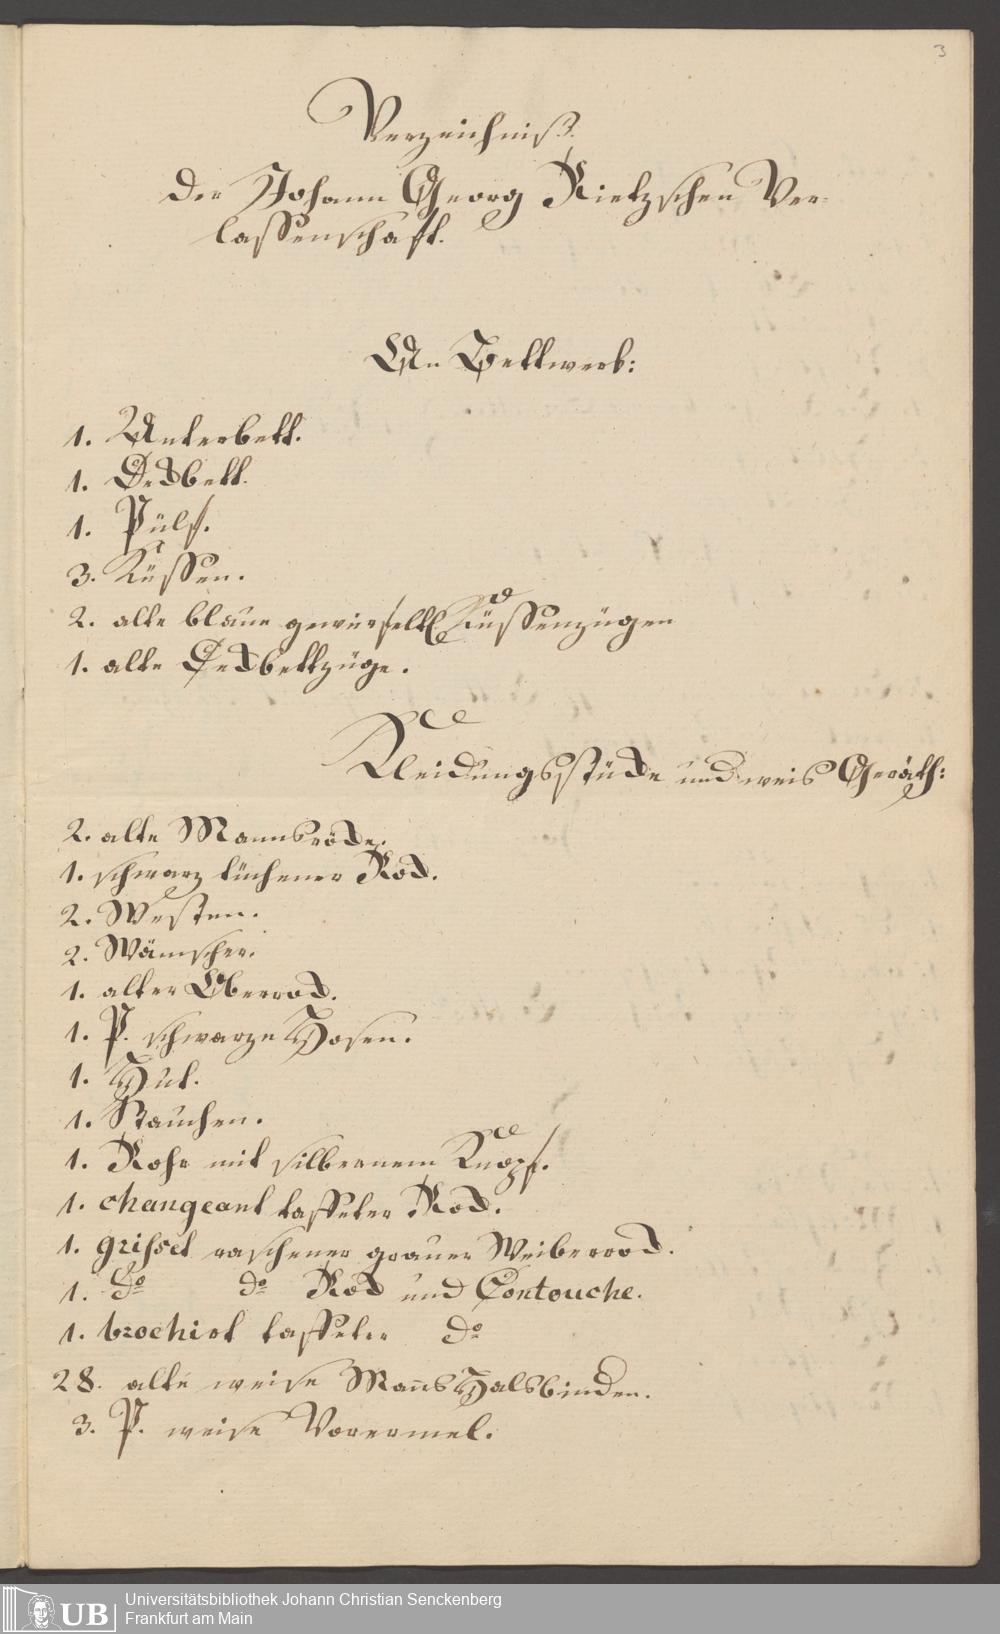 3
Verzeichniß
Der Johann Georg Rietzschen Ver-
lassenschaft.
An Bettwerk:
1. Unterbett.
1. Deckbett.
1. Pülf.
3. Küssen.
2. alte blaue gewürfelte Küssenzügen
1. alte Deckbettzüge.
Kleidungsstücke und weis Geräth:
2. alte Mannsröcke.
1. schwarz tüchener Rock.
2. Westen.
2. Wämscher.
1. alter Oberrock.
1. P. schwarze Hosen.
1. Hut.
1. Stauchen.
1. Rohr mit silbernem Knopf.
1. changeant taffeter Rock.
1. griset raschener grauer Weiberrock.
1. do do Rock und Contouche.
1. brochirt taffeter do
28. alte weise Manns Halsbinden.
3. P. weise Vorermel.
UB Universitätsbibliothek Johann Christian Senckenberg
Frankfurt am Main